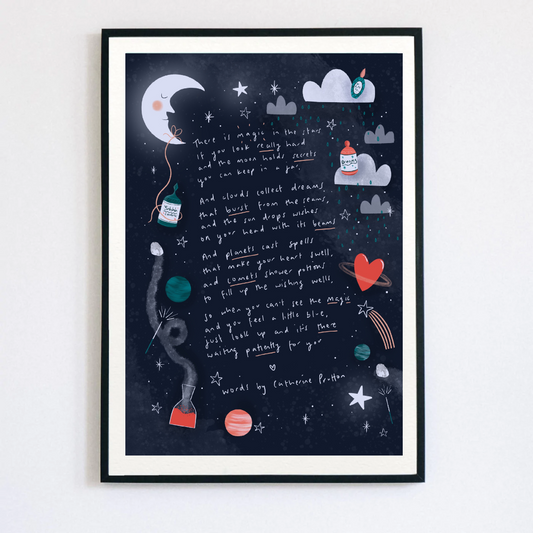 There is magic in the stars
If you look really hard
and the moon holds secrets
you can keep in a jar.
And clouds collect dreams,
that burst from the seams,
and the sun drops wishes
on your head with its beams
And planets cast spells
that make your heart swell,
and comets shower potions
to fill up the wishing wells,
So when you can't see the magic
and you feel a little blue,
Just look up and it's there
waiting patiently for you
words by Catherine Prutton
Dreams